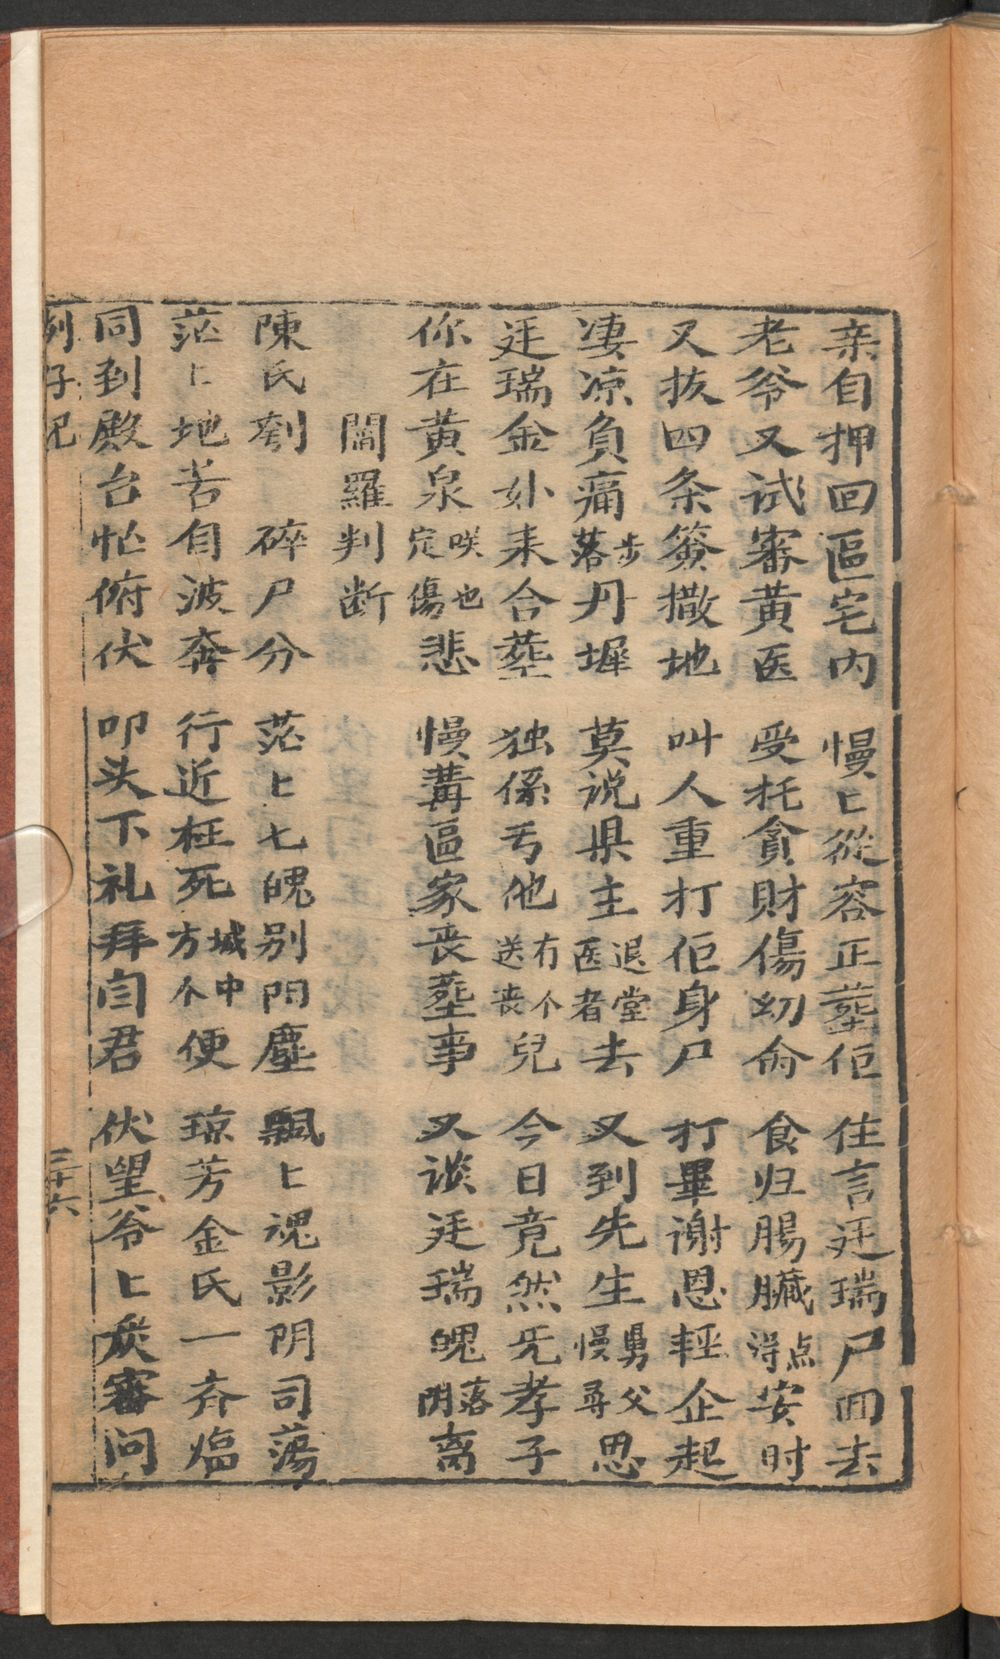 亲自押回區宅内 慢〻從容正𦵏佢 住言廷瑞尸回去
老爷又试審黄医 受托貪財傷幼命 食归腸臓淂点安时
又抜四条簽撒地 叫人重打佢身尸 打畢谢恩軽企起
凄凉負痛步落丹墀 莫说県主退堂医者去 又到先生舅父慢尋思
廷瑞金𡛷来合𦵏 独係亐他有个送丧兒 今日竟然旡孝子
你在黄泉咲也定傷悲 慢講區家丧𦵏事 又谈廷瑞魄落阴离
閻羅判断
陳氏刳 碎尸分 茫〻七魄别阳塵 飄〻魂影阴司蕩
茫〻地苦自波奔 行近枉死城中方个便 琼芳金氏一齐臨
同到殿台忙俯伏 叩头下礼拜闫君 伏望爷〻𤆬審问
刳子児
三十六